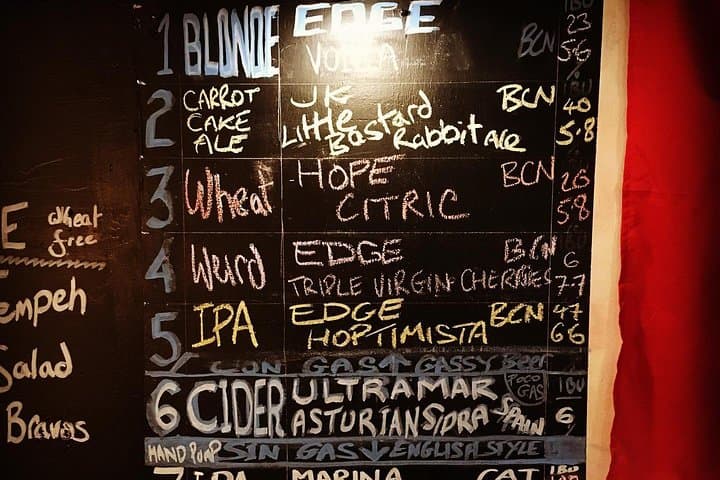 IBU
1 BLONDE EDGE BCN 23
VOLLDA 5·6
2 CARROT CAKE ALE JK BCN 40
Little Bastard Rabbit Ale 5·8
3 Wheat HOPE BCN 26
CITRIC 5·8
4 Weird EDGE BCN 6
TRIPLE VIRGIN CHERRIES 7·7
5 IPA EDGE BCN 47
HOPTIMISTA 66
CON GAS ↑ GASSY BEER
6 CIDER ULTRAMAR POCO GAS IBU
ASTURIAN SIDRA SPAIN 6
HAND PUMP SIN GAS ↓ ENGLISH STYLE
7 IPA MARINA CAT IBU
E wheat free
empeh
Salad
Bravas